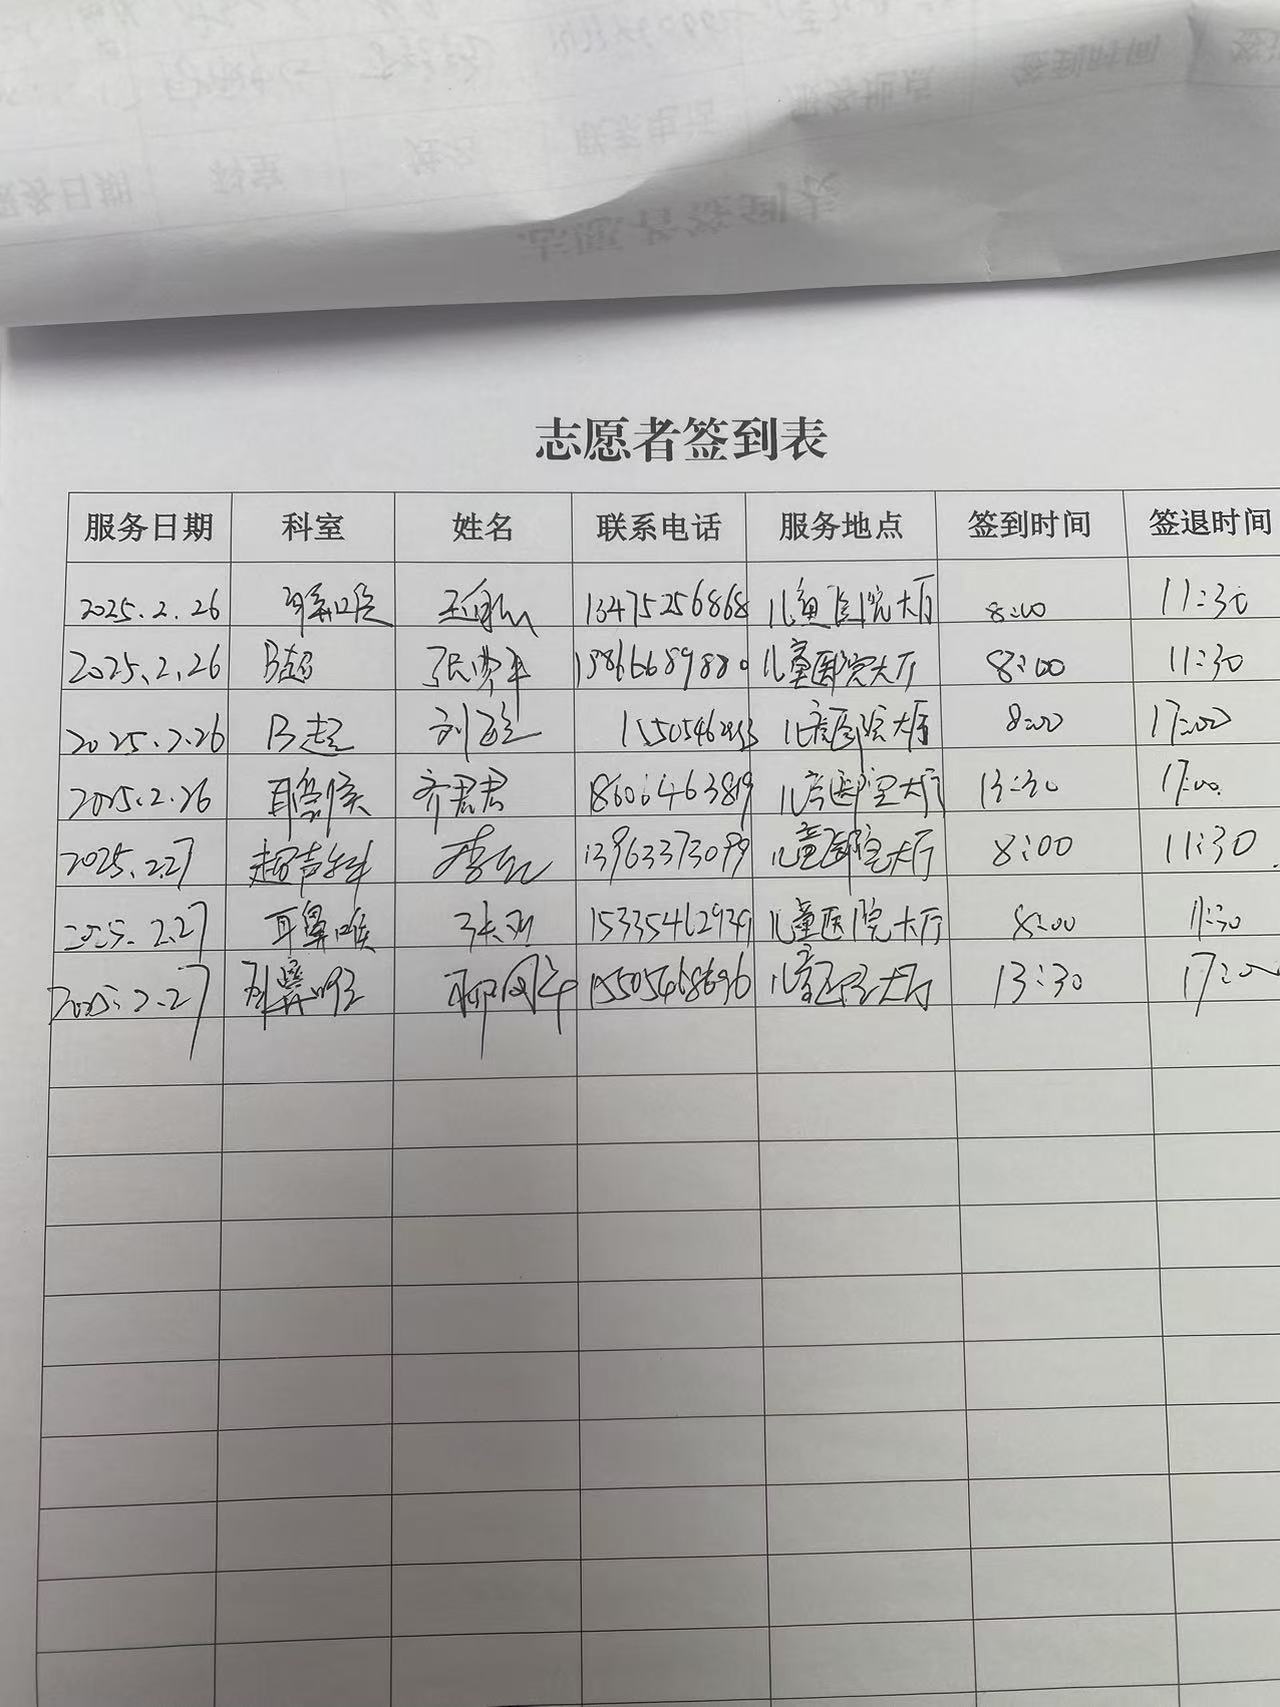 志愿者签到表
服务日期 科室 姓名 联系电话 服务地点 签到时间 签退时间
2025.2.26 耳鼻喉 13475256868 儿童医院大厅 8:00 11:30
2025.2.26 B超 13866689880 儿童医院大厅 8:00 11:30
2025.2.26 B超 刘 儿童医院大厅 8:00 17:00
2025.2.26 耳鼻喉 齐君君 18606463819 儿童医院大厅 13:30 17:00
2025.2.27 超声科 李 13963373099 儿童医院大厅 8:00 11:30
2025.2.27 耳鼻喉 张 15335462939 儿童医院大厅 8:00 11:30
2025.2.27 耳鼻喉 15505468696 儿童医院大厅 13:30 17:00